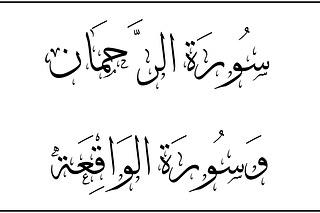 سُورَة الرَّحمَان
وَسُورَة الوَاقِعَة